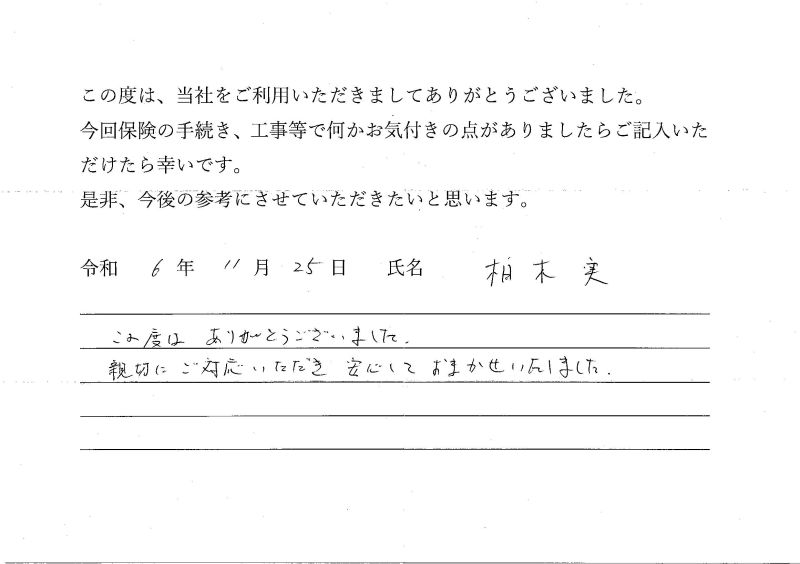 この度は、当社をご利用いただきましてありがとうございました。
今回保険の手続き、工事等で何かお気付きの点がありましたらご記入いた
だけたら幸いです。
是非、今後の参考にさせていただきたいと思います。
令和 6 年 11 月 25 日 氏名 柏木 実
この度は ありがとうございました.
親切に ご対応いただき 安心して おまかせいたしました.